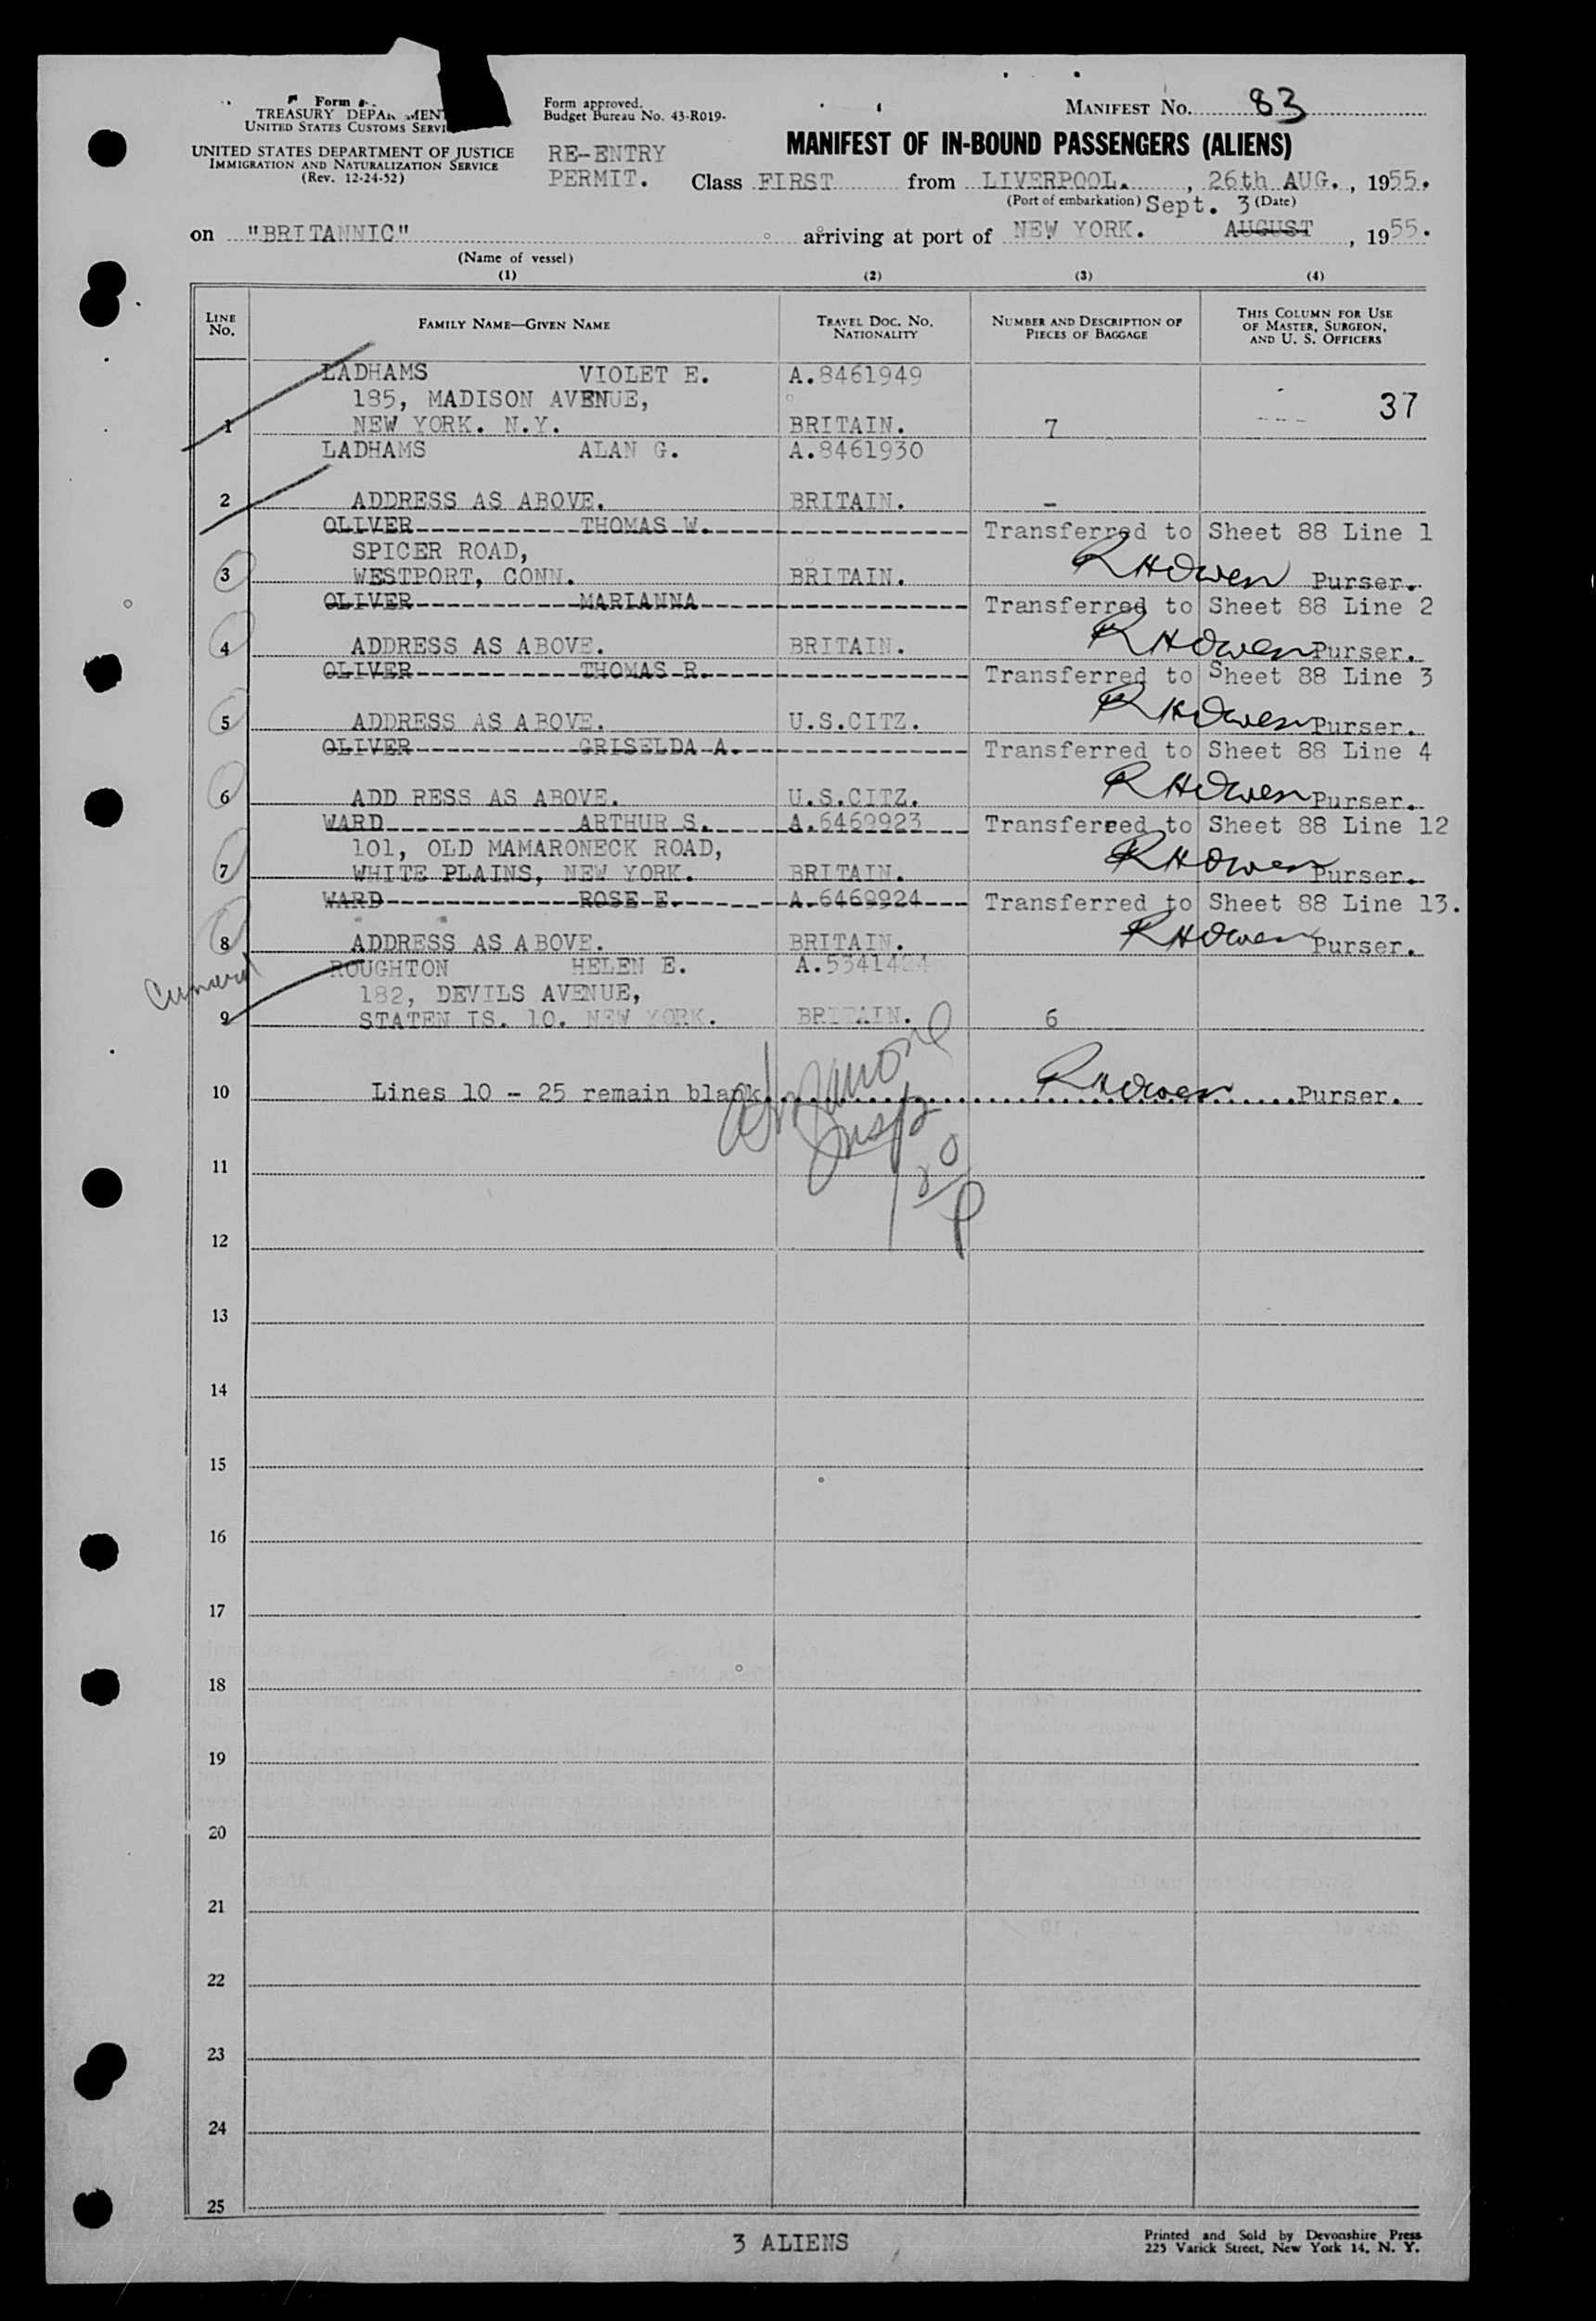 Form
TREASURY DEPARTMENT
UNITED STATES CUSTOMS SERVI
UNITED STATES DEPARTMENT OF JUSTICE
IMMIGRATION AND NATURALIZATION SERVICE
(Rev. 12-24-52)
Form approved.
Budget Bureau No. 43-R019-
MANIFEST NO. 83
MANIFEST OF IN-BOUND PASSENGERS (ALIENS)
RE-ENTRY
PERMIT.
Class FIRST from LIVERPOOL. , 26th AUG. , 1955.
(Port of embarkation) Sept. 3 (Date)
on "BRITANNIC" arriving at port of NEW YORK. AUGUST , 1955.
(Name of vessel)
(1) (2) (3) (4)
LINE No. FAMILY NAME—GIVEN NAME TRAVEL DOC. NO. NATIONALITY NUMBER AND DESCRIPTION OF PIECES OF BAGGAGE THIS COLUMN FOR USE OF MASTER, SURGEON, AND U. S. OFFICERS
LADHAMS VIOLET E. A.8461949
185, MADISON AVENUE, 37
1 NEW YORK. N.Y. BRITAIN. 7
LADHAMS ALAN G. A.8461930
2 ADDRESS AS ABOVE. BRITAIN. -
OLIVER-----------THOMAS W.------------------ Transferred to Sheet 88 Line 1
SPICER ROAD,
3 WESTPORT, CONN. BRITAIN. RHOwen Purser.
OLIVER-----------MARIANNA------------------ Transferred to Sheet 88 Line 2
4 ADDRESS AS ABOVE. BRITAIN. RHOwen Purser.
OLIVER-----------THOMAS R.------------------ Transferred to Sheet 88 Line 3
5 ADDRESS AS ABOVE. U.S.CITZ. RHOwen Purser.
OLIVER-----------GRISELDA A.---------------- Transferred to Sheet 88 Line 4
6 ADD RESS AS ABOVE. U.S.CITZ. RHOwen Purser.
WARD-------------ARTHUR S.-----A.6469923--- Transferred to Sheet 88 Line 12
101, OLD MAMARONECK ROAD,
7 WHITE PLAINS, NEW YORK. BRITAIN. RHOwen Purser.
WARD-------------ROSE E.-------A.6469924--- Transferred to Sheet 88 Line 13.
8 ADDRESS AS ABOVE. BRITAIN. RHOwen Purser.
Cunard
ROUGHTON HELEN E.
182, DEVILS AVENUE,
9 STATEN IS. 10. NEW YORK. BRITAIN. 6
10 Lines 10 - 25 remain blank. RHOwen Purser.
11
12
13
14
15
16
17
18
19
20
21
22
23
24
25
3 ALIENS
Printed and Sold by Devonshire Press
225 Varick Street, New York 14, N. Y.